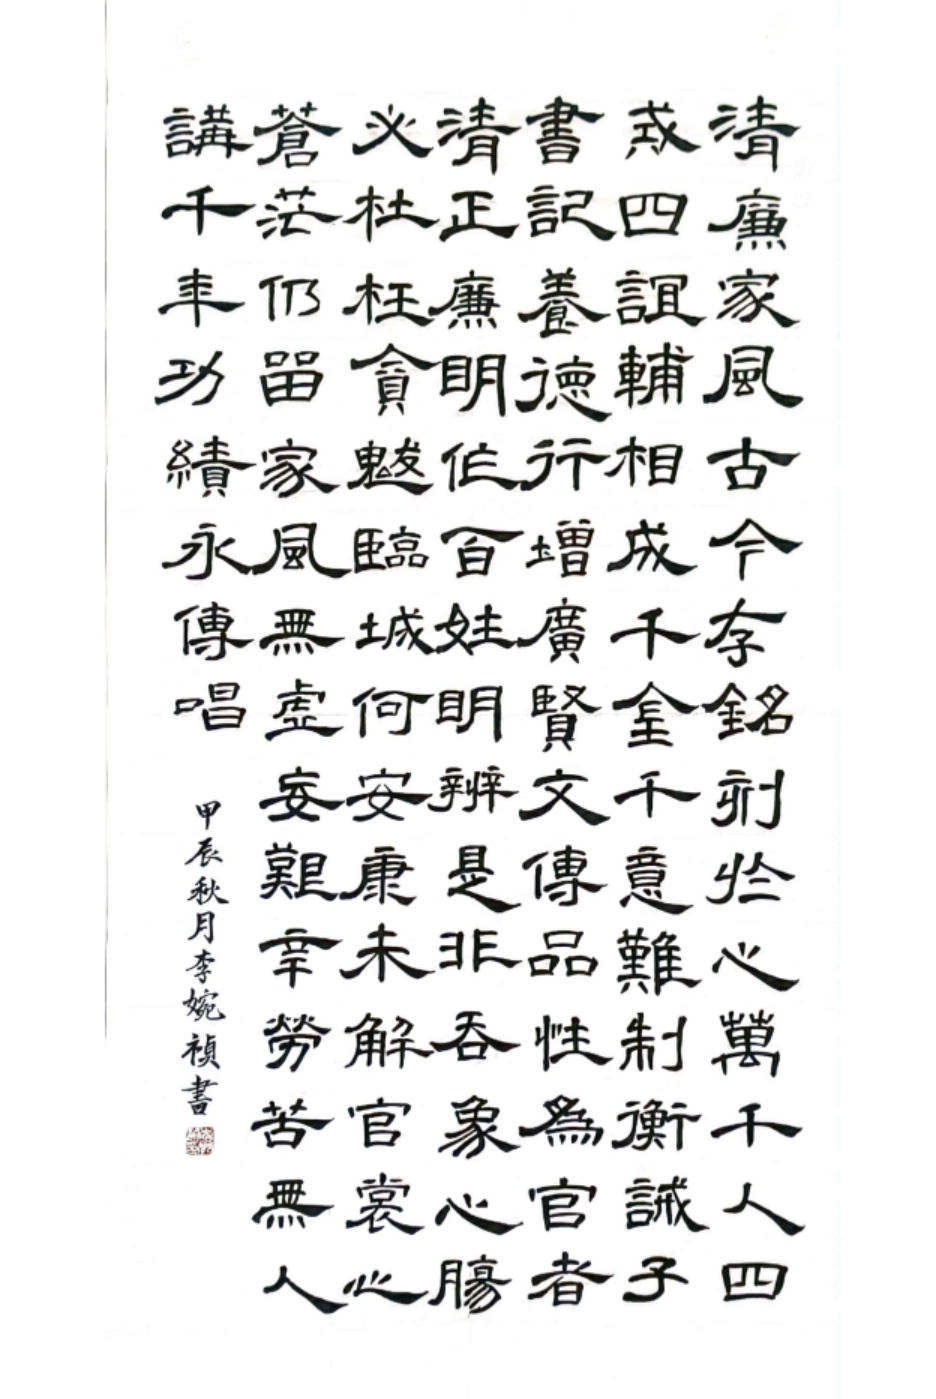 清廉家風古今存銘刻於心萬千人四
戒四誼輔相成千金千意難制衡誡子
書記養德行增廣賢文傳品性為官者
清正廉明作百姓明辨是非吞象心腸
必杜枉貪魃臨城何安康未解官裳心
蒼茫仍留家風無虛妄艱辛勞苦無人
講千年功績永傳唱
甲辰秋月李婉禎書